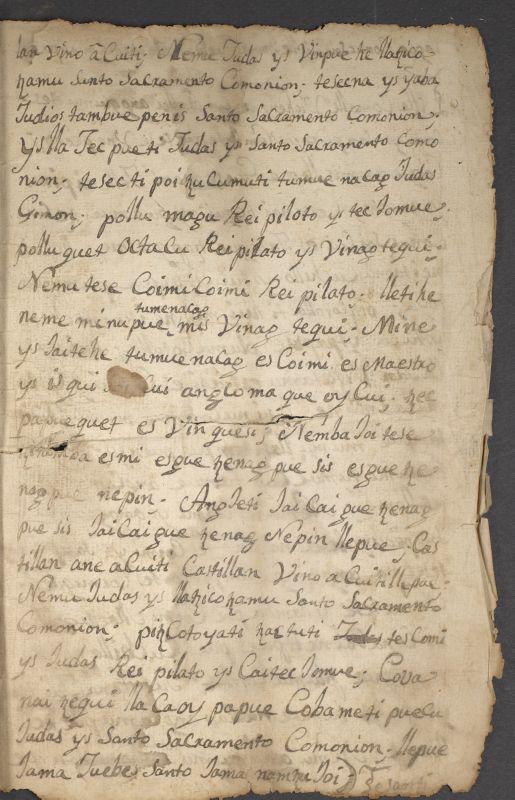 lan Vino a Cuiti; Nemu Judas ys Vinpue he llaHico
hamu Santo Sacramento Comonion; tesecna ys yaba
Judios tambue penis Santo Sacramento Comonion;
ys lla Tec pue ti Judas ys Santo Sacramento Como
nion; tesecti poi hucumuti tumue nacag Judas
Gimon; pollu magu Rei piloto ys tec Jomue;
pollu quet Octalu Rei pilato ys Vinag tequi;
Nemu tese Coimi Coimi Rei pilato; lleti he
tumenacag
neme minu pue mis Vinag tequi; Mine
ys Jaitehe tumue nacag es Coimi es Maestro
ys is qui cui anglo ma que oy Cui; hec
papue quet es Vin quesis; Nemba Joi tese
es mi es gue henag pue sis es gue he
nag nepin; Angleti Jai Cai gue henag
pue sis Jai Cai gue henag Nepin llepue; Cas
tillan ane a Cuiti Castillan Vino a Cuiti llepue
Nemu Judas ys llaHico hamu Santo Sacramento
Comonion; pih Cotoyati hac tuti tes Comi
ys Judas Rei pilato ys Cai tec Jomue; Cova
nai hequi lla Caoy papue Cobameti pue Cu
Judas ys Santo Sacramento Comonion; llepue
Jama Juebes Santo Jama namhu Joi;